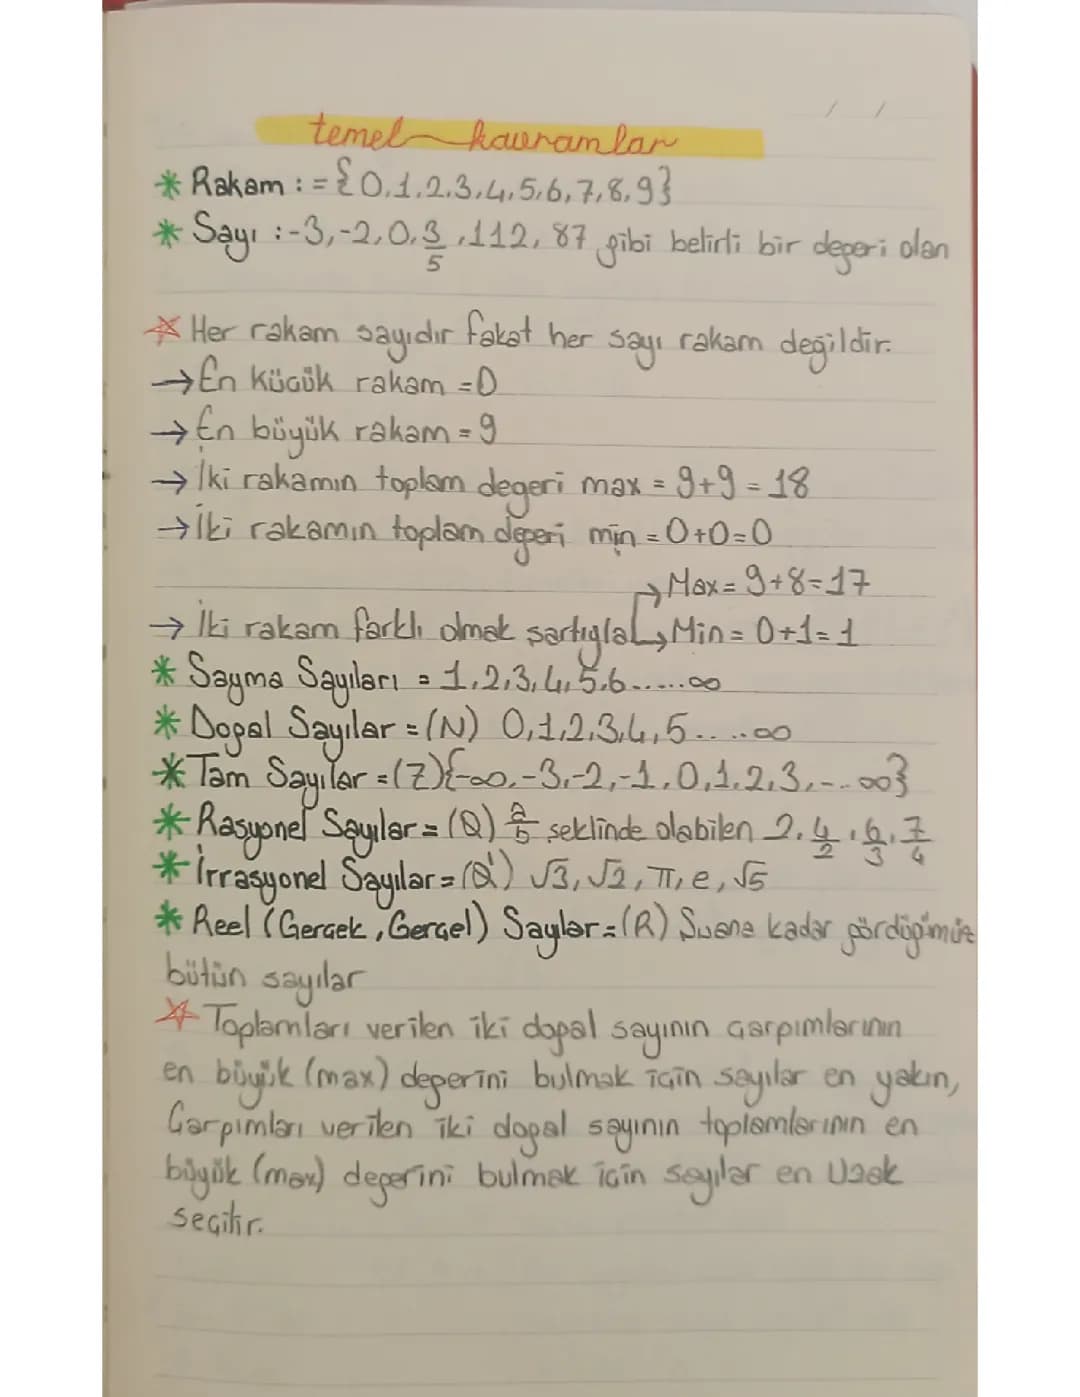 temel kavramlar
* Rakam : = {0,1,2,3,4,5,6,7,8,9}
* Sayı : -3, -2, 0, 3/5, 112, 87 gibi belirli bir değeri olan
☆ Her rakam sayıdır fakat her sayı rakam değildir.
→ En küçük rakam = 0
→ En büyük rakam = 9
→ İki rakamın toplam değeri max = 9+9 = 18
→ İki rakamın toplam değeri min = 0+0=0
→ Max = 9+8=17
→ İki rakam farklı olmak şartıyla → Min = 0+1=1
* Sayma Sayıları = 1,2,3,4,5,6......∞
* Doğal Sayılar = (N) 0,1,2,3,4,5.....∞
* Tam Sayılar = (Z) {-∞,-3,-2,-1,0,1,2,3,-..∞}
* Rasyonel Sayılar = (Q) a/b şeklinde olabilen 2, 4/2, 6/3, 7/4
* İrrasyonel Sayılar = (Q') √3, √2, π, e, √5
* Reel (Gerçek, Gerçel) Saylar = (R) Şuana kadar gördüğümüz
bütün sayılar
☆ Toplamları verilen iki doğal sayının çarpımlarının
en büyük (max) değerini bulmak için sayılar en yakın,
Çarpımları verilen iki doğal sayının toplamlarının en
büyük (max) değerini bulmak için sayılar en uzak
seçilir.